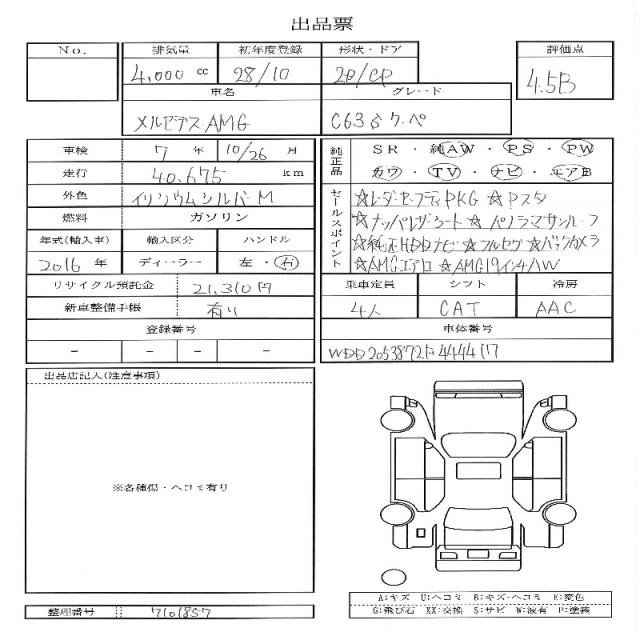 出品票
No. 排気量 初年度登録 形状・ドア 評価点
4,000 cc 28/10 2D/CP 4.5B
車名 グレード
メルセデスAMG C63Sクーペ
車検 7 年 10/26 月
走行 40,675 km
外色 イリジウムシルバーM
燃料 ガソリン
年式(輸入車) 輸入区分 ハンドル
2016 年 ディーラー 左・右
リサイクル預託金 21,310円
新車整備手帳 有り
登録番号
- - - -
純正品
SR・純AW・PS・PW
カワ・TV・ナビ・エアB
セールスポイント
☆レーダーセーフティPKG ☆Pスタ
☆ナッパレザーシート☆パノラマサンルーフ
☆純正HDDナビ☆フルセグ☆バックカメラ
☆AMGエアロ☆AMG19インチAW
乗車定員 シフト 冷房
4人 CAT AAC
車体番号
WDD2053872F444417
出品店記入(注意事項)
※各種傷・ヘコミ有り
整理番号 7101857
A:キズ U:ヘコミ B:キズ・ヘコミ E:変色
G:飛び石 XX:交換 S:サビ W:波有 P:塗装